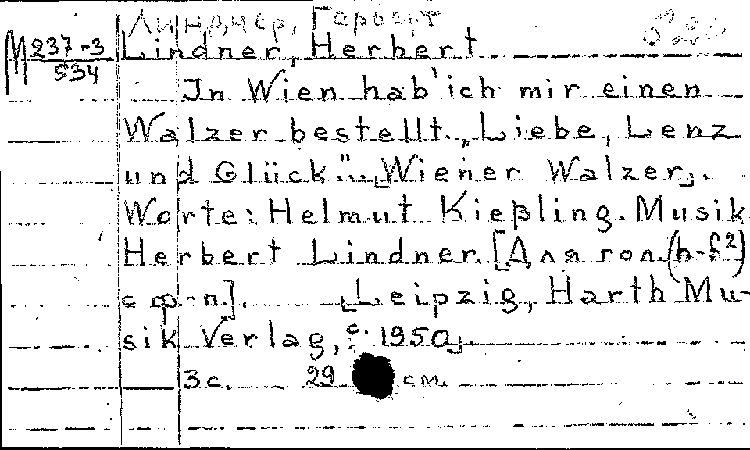 Линднер, Герберт
М 237-3
534
Lindner, Herbert
In Wien hab' ich mir einen
Walzer bestellt. „Liebe, Lenz
und Glück". „Wiener Walzer„.
Worte: Helmut Kießling. Musik
Herbert Lindner. [Для гол. (h-f²)
с ф-п.]. [Leipzig, Harth Mu-
sik Verlag, c. 1950].
3 с. 29 см.